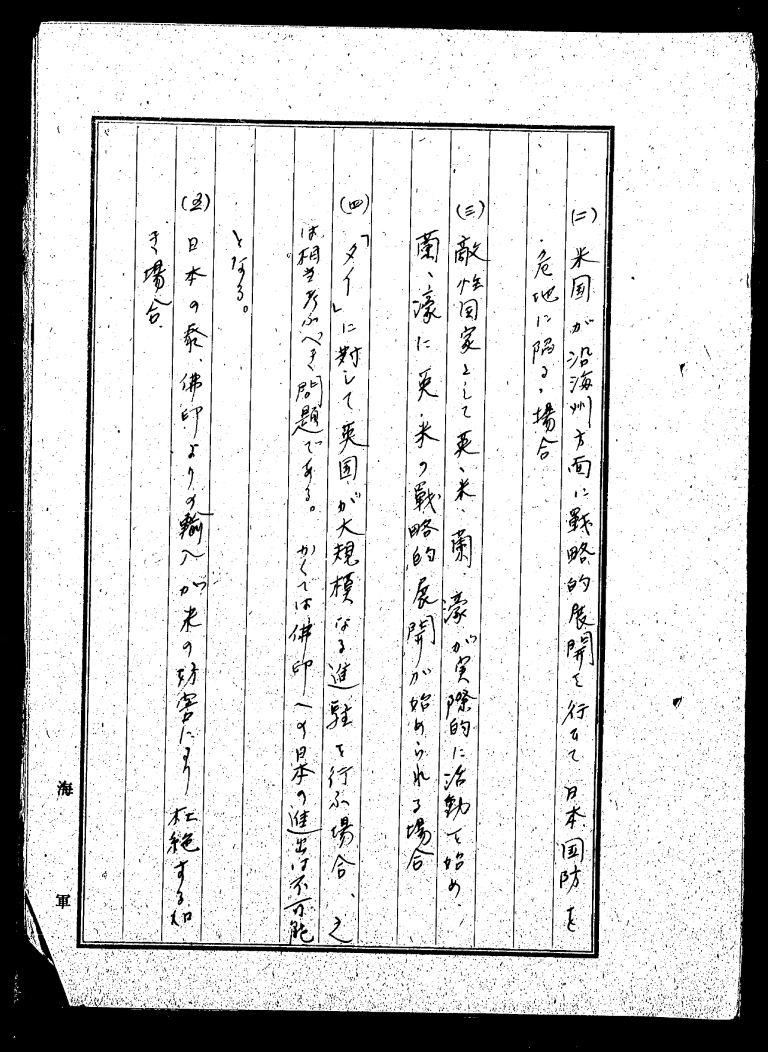 (二) 米国が沿海州方面に戦略的展開を行ひて日本国防を
危地に陥る、場合
(三) 敵性国家として英、米、蘭、濠が実際的に活動を始め、
蘭、濠に英、米の戦略的展開が始められる場合
(四) 「タイ」に対して英国が大規模なる進駐を行ふ場合、之
は相当考ふべき問題である。かくては佛印への日本の進出は不可能
となる。
(五) 日本の泰、佛印よりの輸入が米の妨害により杜絶する如
き場合
海軍